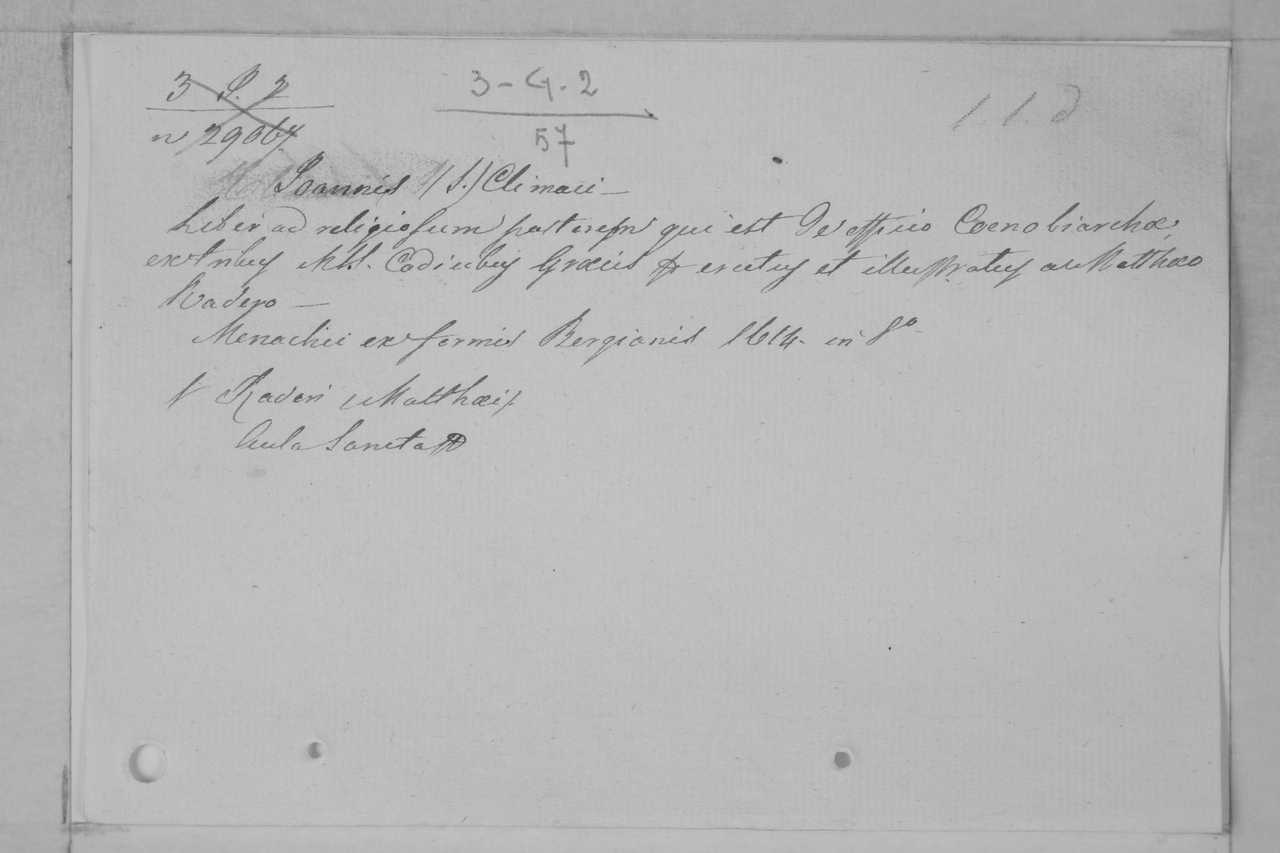 3 P. 2
n 29064
3-G.2
57
1.1.d
Joannis (S.) Climaci —
Liber ad religiosum pastorem qui est De officio Coenobiarchæ
ex tribus MSS. Codicibus Græcis erutus et illustratus a Matthæo
Radero —
Monachii ex formis Bergianis 1614. in 8º
V Raderi Matthæi
Aula Sancta